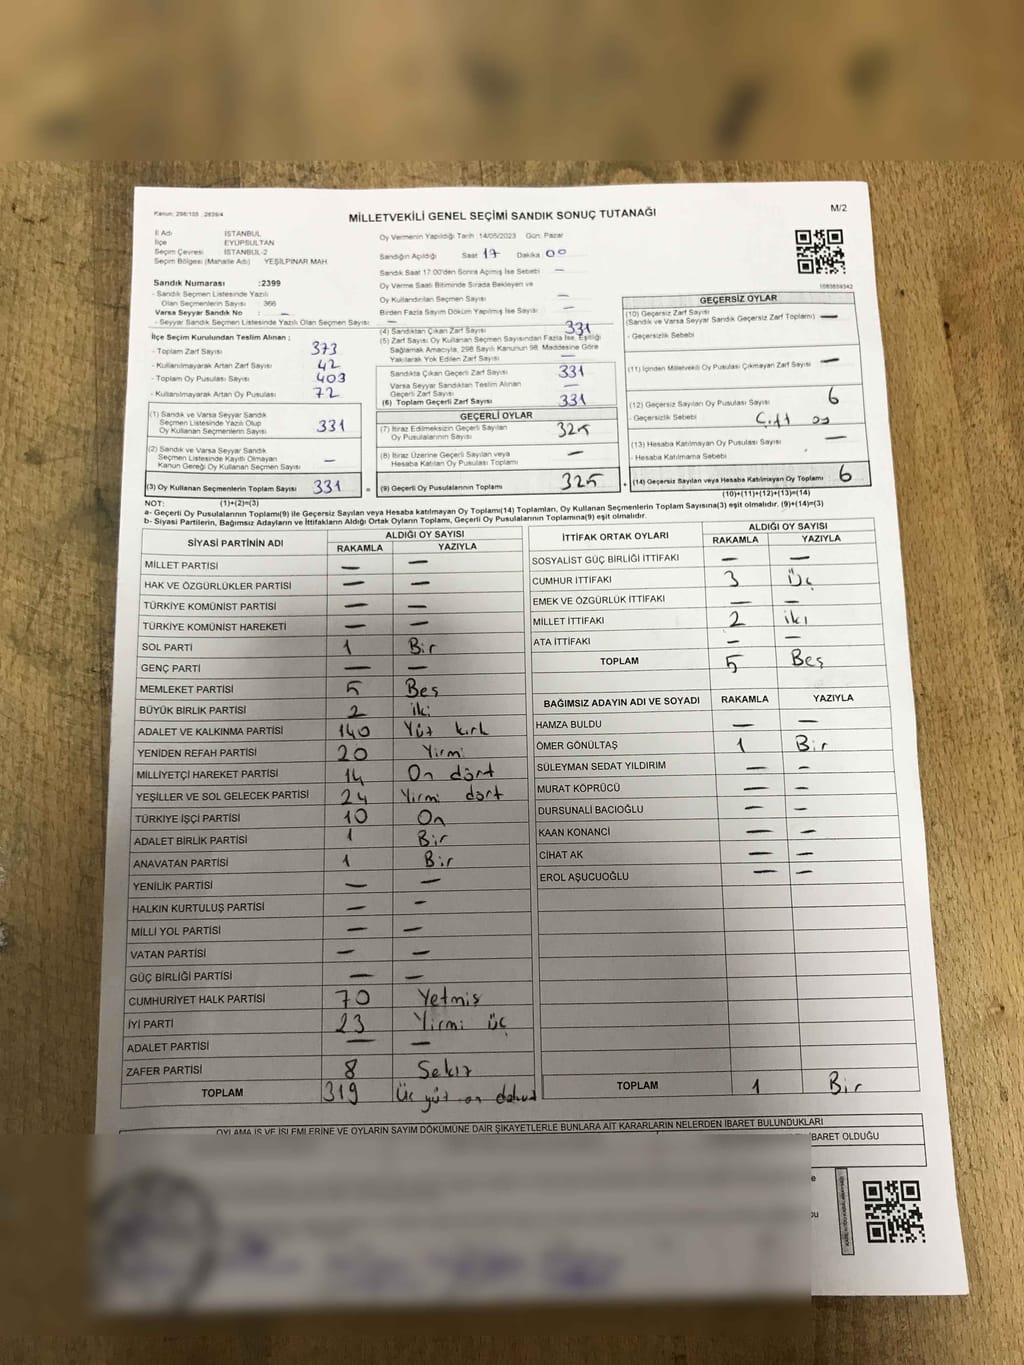 Kanun: 298/105 2839/4
MİLLETVEKİLİ GENEL SEÇİMİ SANDIK SONUÇ TUTANAĞI
M/2
İl Adı İSTANBUL
İlçe EYÜPSULTAN
Seçim Çevresi İSTANBUL-2
Seçim Bölgesi (Mahalle Adı) YEŞİLPINAR MAH.
Oy Vermenin Yapıldığı Tarih :14/05/2023 Gün: Pazar
Sandığın Açıldığı Saat 17 Dakika 00
Sandık Saat 17:00'den Sonra Açılmış İse Sebebi —
Oy Verme Saati Bitiminde Sırada Bekleyen ve
Oy Kullandırılan Seçmen Sayısı —
Birden Fazla Sayım Döküm Yapılmış İse Sayısı —
1083859342
Sandık Numarası :2399
- Sandık Seçmen Listesinde Yazılı
Olan Seçmenlerin Sayısı 366
Varsa Seyyar Sandık No : —
- Seyyar Sandık Seçmen Listesinde Yazılı Olan Seçmen Sayısı: —
İlçe Seçim Kurulundan Teslim Alınan ;
- Toplam Zarf Sayısı 373
- Kullanılmayarak Artan Zarf Sayısı 42
- Toplam Oy Pusulası Sayısı 403
- Kullanılmayarak Artan Oy Pusulası 72
(1) Sandık ve Varsa Seyyar Sandık
Seçmen Listesinde Yazılı Olup
Oy Kullanan Seçmenlerin Sayısı 331
(2) Sandık ve Varsa Seyyar Sandık
Seçmen Listesinde Kayıtlı Olmayan
Kanun Gereği Oy Kullanan Seçmen Sayısı —
(3) Oy Kullanan Seçmenlerin Toplam Sayısı 331 =
(1)+(2)=(3)
(4) Sandıktan Çıkan Zarf Sayısı 331
(5) Zarf Sayısı Oy Kullanan Seçmen Sayısından Fazla İse, Eşitliği
Sağlamak Amacıyla, 298 Sayılı Kanunun 98. Maddesine Göre
Yakılarak Yok Edilen Zarf Sayısı —
Sandıkta Çıkan Geçerli Zarf Sayısı 331
Varsa Seyyar Sandıktan Teslim Alınan
Geçerli Zarf Sayısı —
(6) Toplam Geçerli Zarf Sayısı 331
GEÇERLİ OYLAR
(7) İtiraz Edilmeksizin Geçerli Sayılan
Oy Pusulalarının Sayısı 325
(8) İtiraz Üzerine Geçerli Sayılan veya
Hesaba Katılan Oy Pusulası Toplamı —
(9) Geçerli Oy Pusulalarının Toplamı 325 +
GEÇERSİZ OYLAR
(10) Geçersiz Zarf Sayısı
(Sandık ve Varsa Seyyar Sandık Geçersiz Zarf Toplamı) —
- Geçersizlik Sebebi
(11) İçinden Milletvekili Oy Pusulası Çıkmayan Zarf Sayısı —
(12) Geçersiz Sayılan Oy Pusulası Sayısı 6
- Geçersizlik Sebebi Çift oy
(13) Hesaba Katılmayan Oy Pusulası Sayısı —
- Hesaba Katılmama Sebebi
(14) Geçersiz Sayılan veya Hesaba Katılmayan Oy Toplamı 6
(10)+(11)+(12)+(13)=(14)
NOT:
a- Geçerli Oy Pusulalarının Toplamı(9) ile Geçersiz Sayılan veya Hesaba katılmayan Oy Toplamı(14) Toplamları, Oy Kullanan Seçmenlerin Toplam Sayısına(3) eşit olmalıdır. (9)+(14)=(3)
b- Siyasi Partilerin, Bağımsız Adayların ve İttifakların Aldığı Ortak Oyların Toplamı, Geçerli Oy Pusulalarının Toplamına(9) eşit olmalıdır.
SİYASİ PARTİNİN ADI ALDIĞI OY SAYISI
RAKAMLA YAZIYLA
MİLLET PARTİSİ — —
HAK VE ÖZGÜRLÜKLER PARTİSİ — —
TÜRKİYE KOMÜNİST PARTİSİ — —
TÜRKİYE KOMÜNİST HAREKETİ — —
SOL PARTİ 1 Bir
GENÇ PARTİ — —
MEMLEKET PARTİSİ 5 Beş
BÜYÜK BİRLİK PARTİSİ 2 iki
ADALET VE KALKINMA PARTİSİ 140 Yüz kırk
YENİDEN REFAH PARTİSİ 20 Yirmi
MİLLİYETÇİ HAREKET PARTİSİ 14 On dört
YEŞİLLER VE SOL GELECEK PARTİSİ 24 Yirmi dört
TÜRKİYE İŞÇİ PARTİSİ 10 On
ADALET BİRLİK PARTİSİ 1 Bir
ANAVATAN PARTİSİ 1 Bir
YENİLİK PARTİSİ — —
HALKIN KURTULUŞ PARTİSİ — —
MİLLİ YOL PARTİSİ — —
VATAN PARTİSİ — —
GÜÇ BİRLİĞİ PARTİSİ — —
CUMHURİYET HALK PARTİSİ 70 Yetmiş
İYİ PARTİ 23 Yirmi üç
ADALET PARTİSİ — —
ZAFER PARTİSİ 8 Sekiz
TOPLAM 319 Üç yüz on dokuz
İTTİFAK ORTAK OYLARI ALDIĞI OY SAYISI
RAKAMLA YAZIYLA
SOSYALİST GÜÇ BİRLİĞİ İTTİFAKI — —
CUMHUR İTTİFAKI 3 Üç
EMEK VE ÖZGÜRLÜK İTTİFAKI — —
MİLLET İTTİFAKI 2 iki
ATA İTTİFAKI — —
TOPLAM 5 Beş
BAĞIMSIZ ADAYIN ADI VE SOYADI RAKAMLA YAZIYLA
HAMZA BULDU — —
ÖMER GÖNÜLTAŞ 1 Bir
SÜLEYMAN SEDAT YILDIRIM — —
MURAT KÖPRÜCÜ — —
DURSUNALİ BACIOĞLU — —
KAAN KONANCİ — —
CİHAT AK — —
EROL AŞUCUOĞLU — —
TOPLAM 1 Bir
OYLAMA İŞ VE İŞLEMLERİNE VE OYLARIN SAYIM DÖKÜMÜNE DAİR ŞİKAYETLERLE BUNLARA AİT KARARLARIN NELERDEN İBARET BULUNDUKLARI
İBARET OLDUĞU